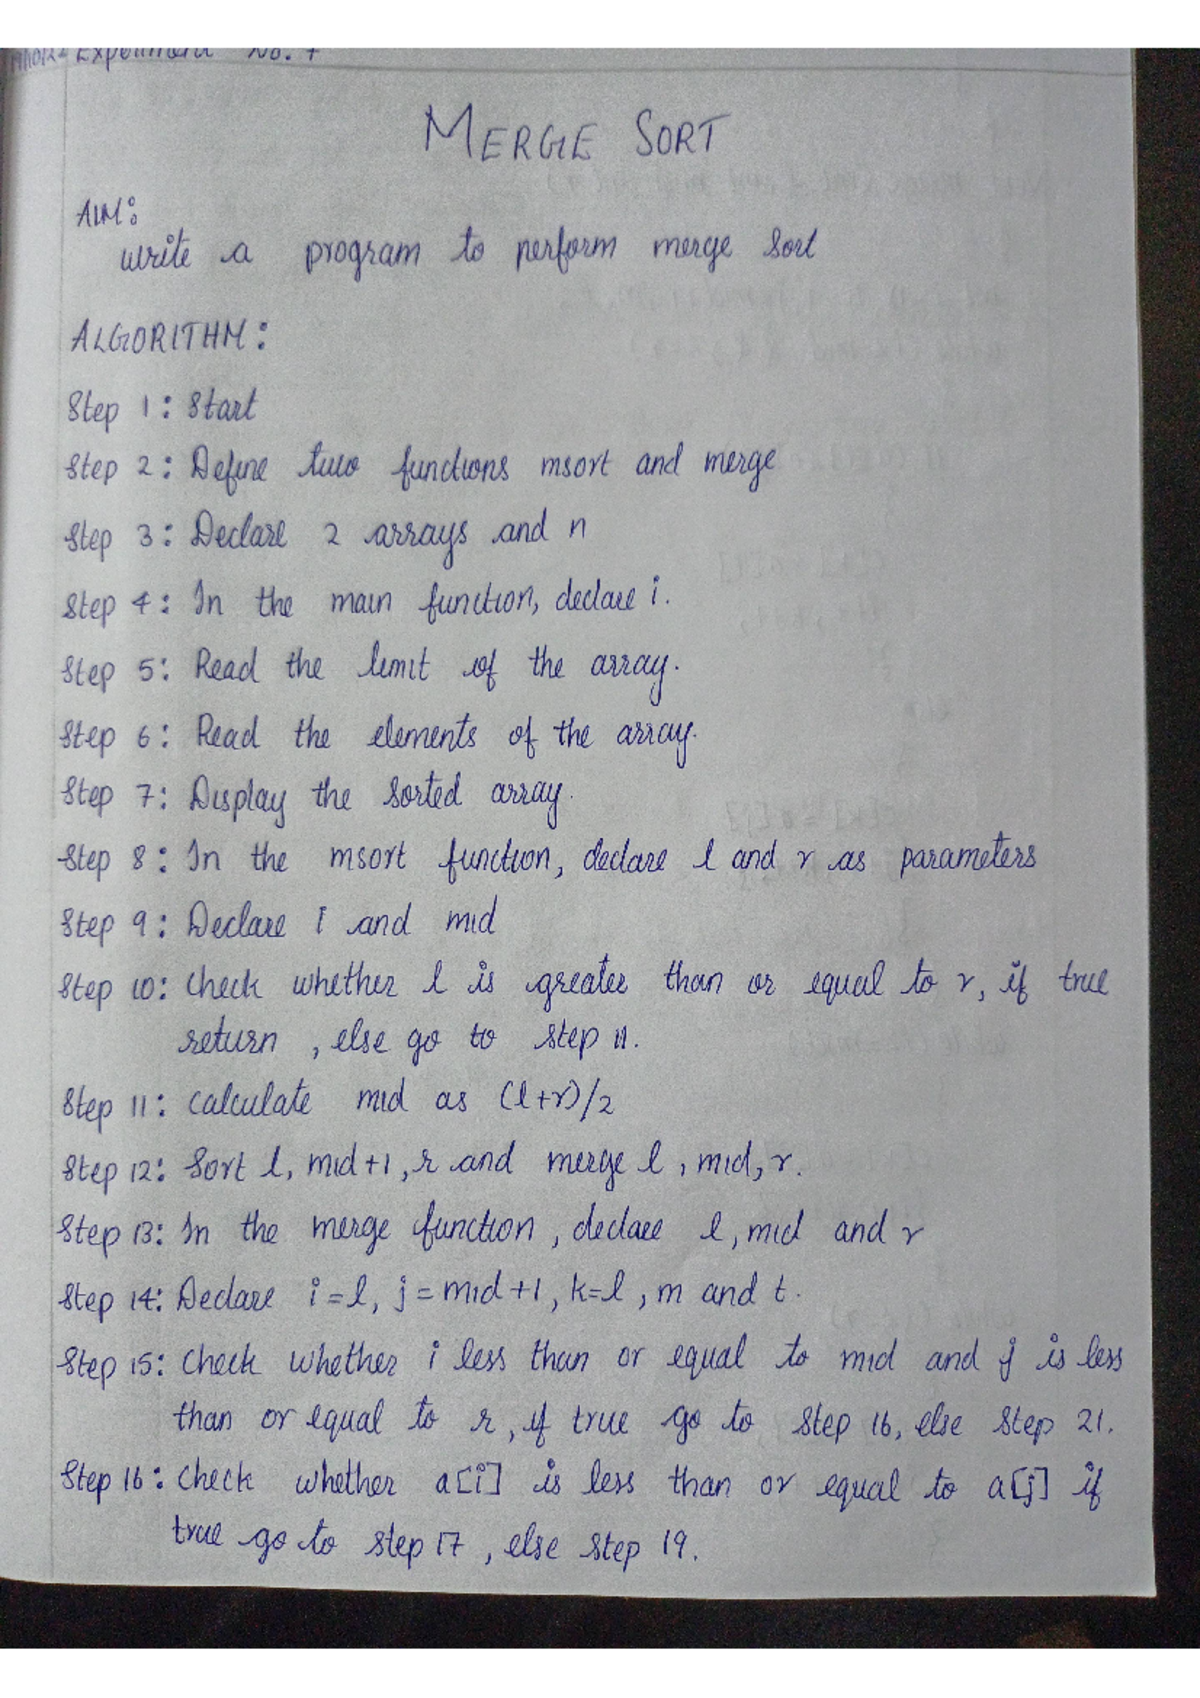 Experiment No. 7
MERGE SORT
AIM:
write a program to perform merge sort
ALGORITHM:
Step 1: Start
Step 2: Define two functions msort and merge
Step 3: Declare 2 arrays and n
Step 4: In the main function, declare i.
Step 5: Read the limit of the array.
Step 6: Read the elements of the array.
Step 7: Display the sorted array.
Step 8: In the msort function, declare l and r as parameters
Step 9: Declare i and mid
Step 10: Check whether l is greater than or equal to r, if true
return , else go to step 11.
Step 11: calculate mid as (l+r)/2
Step 12: Sort l, mid+1, r and merge l, mid, r.
Step 13: In the merge function, declare l, mid and r
Step 14: Declare i=l, j=mid+1, k=l, m and t.
Step 15: Check whether i less than or equal to mid and j is less
than or equal to r, if true go to step 16, else step 21.
Step 16: Check whether a[i] is less than or equal to a[j] if
true go to step 17, else step 19.